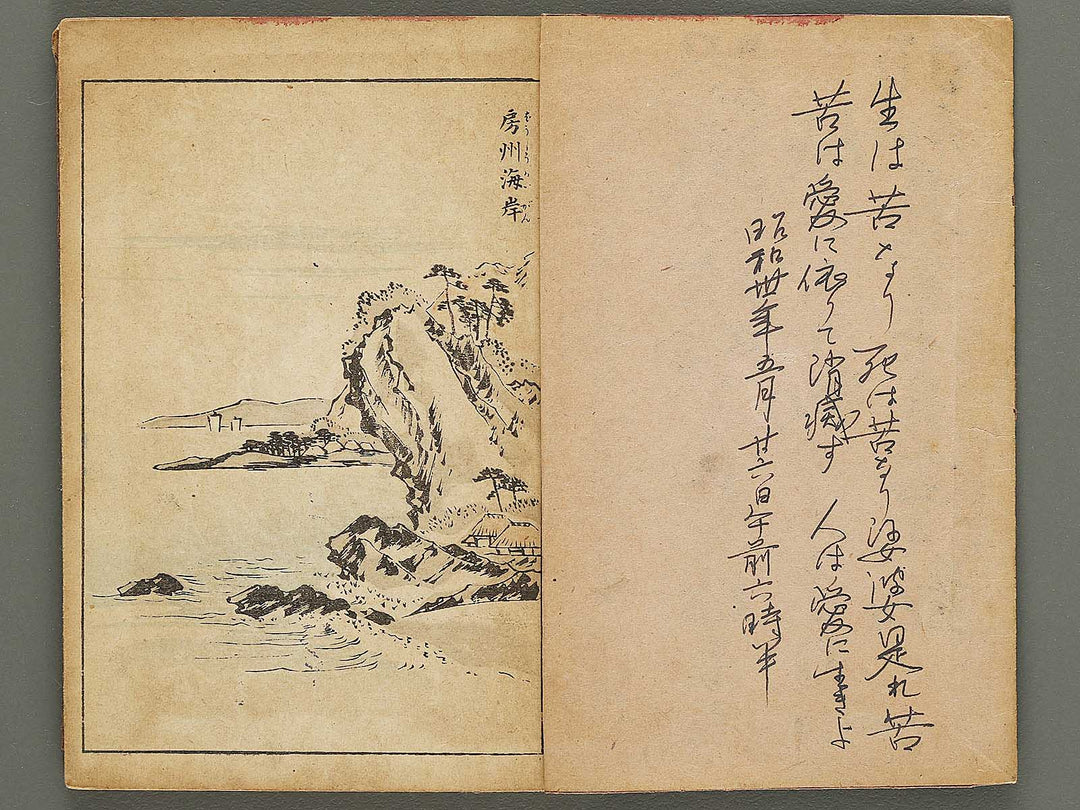 生は苦なり 死は苦なり 娑婆是れ苦
苦は愛に依りて消滅す 人は愛に生きよ
昭和卅年五月廿六日午前六時半
房州海岸